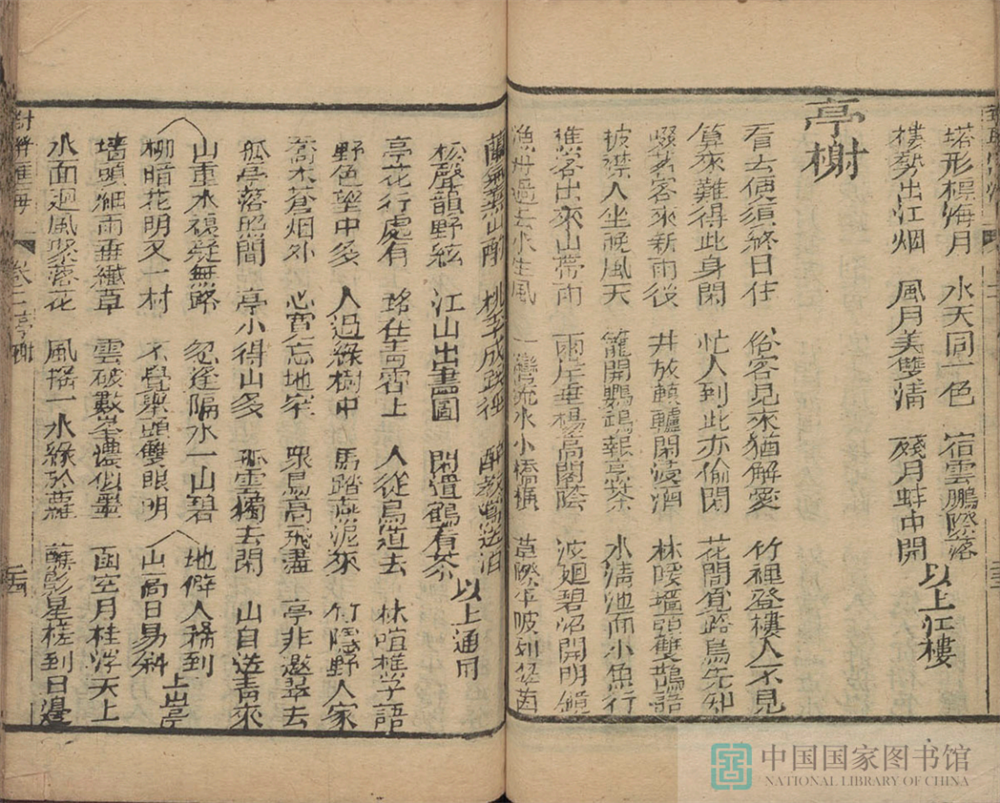 塔形標海月 水天同一色 宿雲鵬際落
樓勢出江烟 風月美雙清 殘月蚌中開 以上江樓
亭榭
看去便須終日住 俗容見來猶解愛 竹裡登樓人不見
算來難得此身閑 忙人到此亦偷閑 花間覓路鳥先知
客來新雨後 井放轆轤閑浸酒 林暖墻頭雙鵲語
披襟人坐晚風天 籠開鸚鵡報烹茶 水清池面小魚行
樵客出來山帶雨 兩岸垂楊高閣陰 波廻碧沼開明鏡
漁舟過去水生風 一灣流水小橋橫 草 平坡列翠茵
桃李成蹊徑
松聲韻野絃 江山出畫圖 閑 鶴看茶 以上通用
亭花行處有 路在青霄上 人從鳥道去 林喧樵子語
野色望中多 人過綠樹中 馬踏燕泥來 竹隱野人家
喬木蒼烟外 心賞忘地窄 眾鳥高飛盡 亭非邀翠去
孤亭落照間 亭小得山多 孤雲獨去閑 山自送青來
山重水複疑無路 忽逢隔水一山碧 地僻人稀到
柳暗花明又一村 不覺舉頭雙眼明 山高日易斜 上山亭
墻頭細雨垂纖草 雲破數峯濃似墨 函空月桂浮天上
水面迴風聚落花 風搖一水綠於蘿 蘸影星槎到日邊
卷二 亭榭
中国国家图书馆
NATIONAL LIBRARY OF CHINA